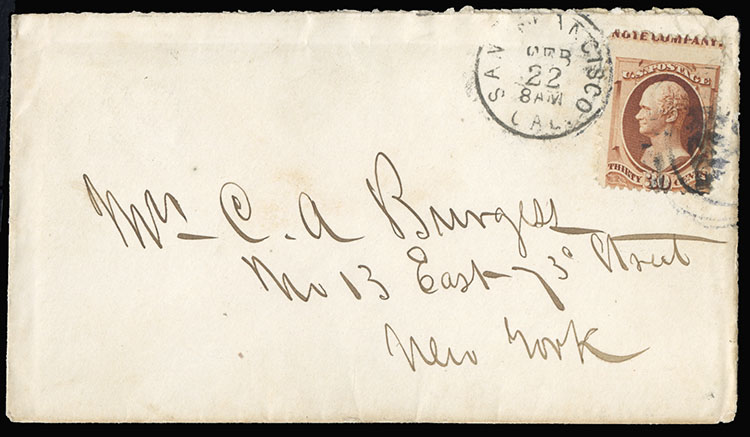 SAN FRANCISCO
FEB
22
8AM
CAL.
NOTE COMPANY.
U.S. POSTAGE
THIRTY 30 CENTS
Mrs C. A Burgess
No 13 East 73d Street
New York